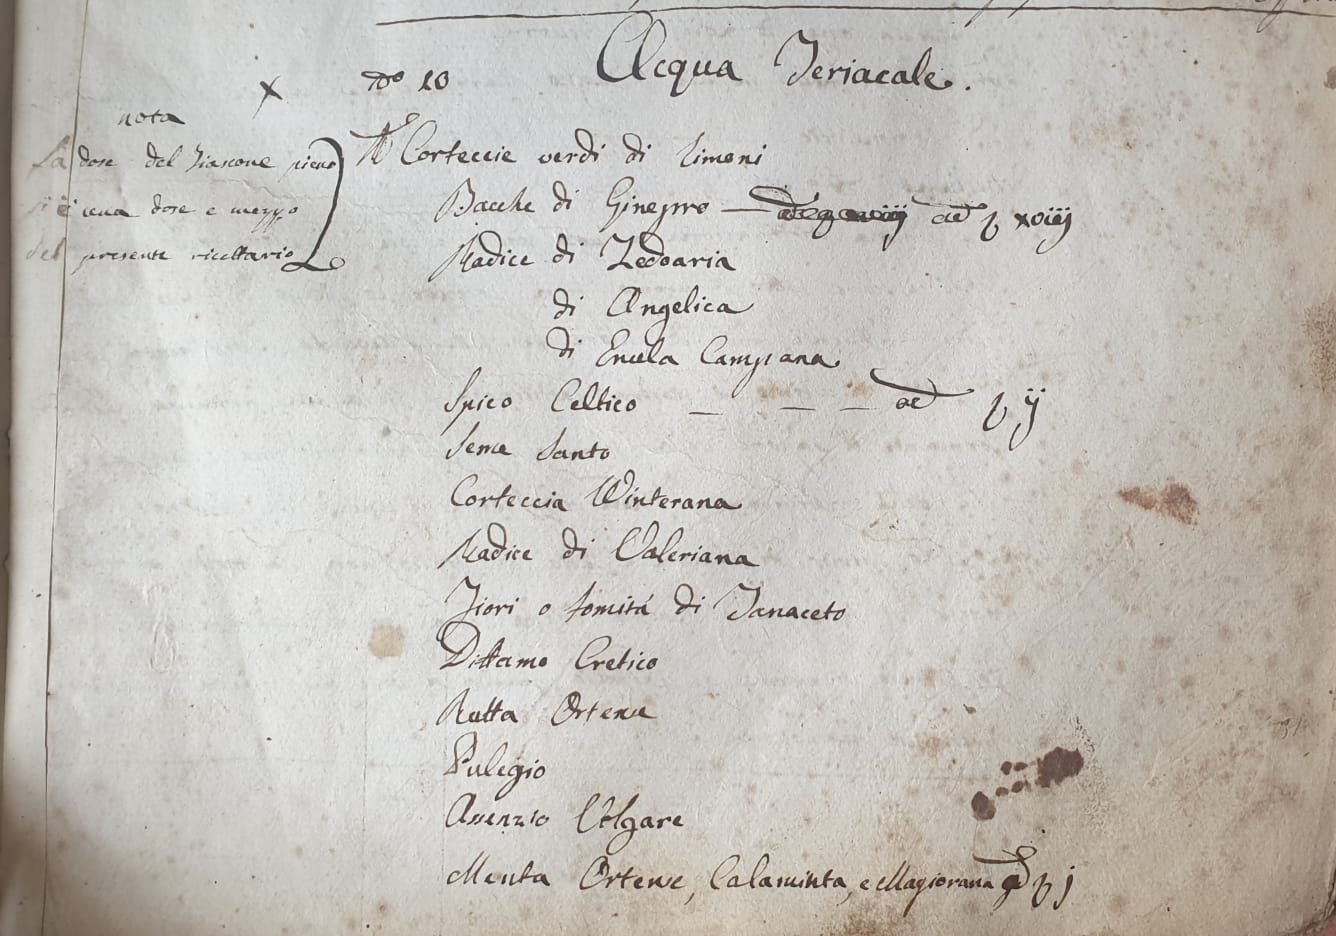 No 10
Acqua Teriacale.
nota
La dose del Fiascone pieno
si è una dose e mezzo
del presente ricettario
℞ Corteccie verdi di Limoni
Bacche di Ginepro — aā ℥ xviij
Radice di Zedoaria
di Angelica
di Enula Campana
Spico Celtico — — — aā ℥ ij
Seme Santo
Corteccia Winterana
Radice di Valeriana
Fiori o somità di Tanaceto
Dittamo Cretico
Rutta Ortense
Pulegio
Assenzio Volgare
Menta Ortense, Calaminta, e Magiorana aā ℥ j